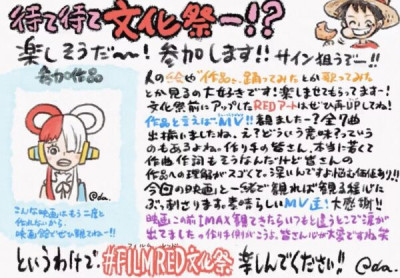 待て待て文化祭ー!?
楽しそうだ〜〜!参加します!!サイン狙うぞー!!
参加作品
人の絵や"作品を、踊ってみたとか歌ってみた
とか見るの大好きです!楽しませてもらってます!
文化祭前にアップしたREDアートはぜひ再UPしてね!
作品と言えばMV!!観ましたー?全7曲
出揃いましたね、え?どういう意味?っていう
のもあるよね。作り手の皆さん、本当に若くて
作曲作詞もそうなんだけど皆さんの
作品への理解がスゴくて。深いんですよ悩む価値あり!!
今回の映画と一緒で観れば観る程心に
ぶっ刺さります。素晴らしいMV達!大感謝!!
映画この前IMAX観てきたらいつもと違うとこで涙が
出てました。作り手側がこうよ。皆さん心が大変ですね笑
こんな映画はもう二度と
作れないから
映画館でぜひ観てねー!!
というわけで #FILMRED文化祭 楽しんでください!!